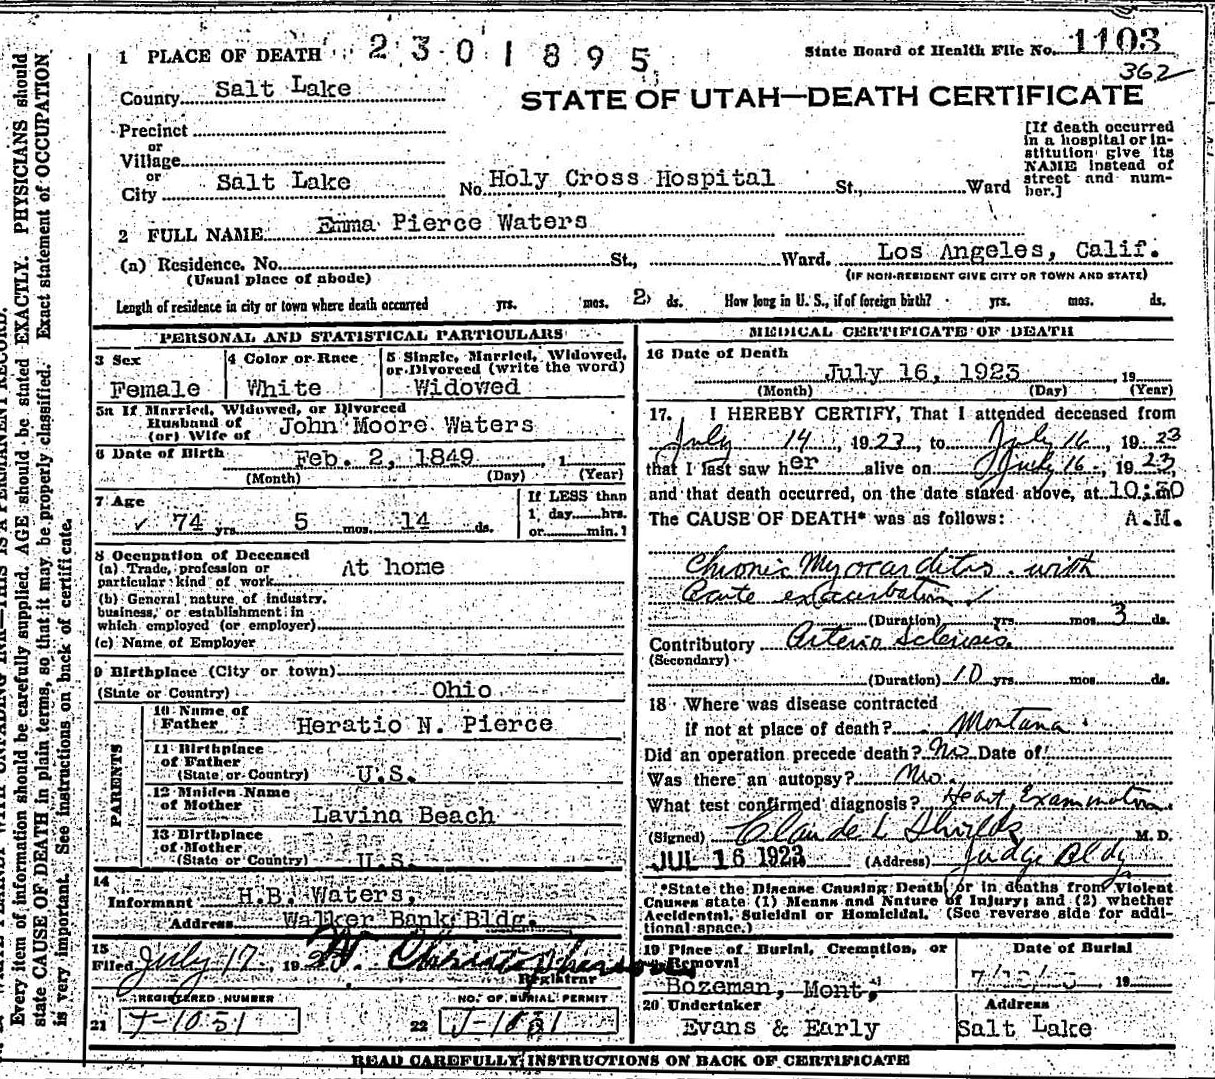 1 PLACE OF DEATH 2301895
State Board of Health File No. 1103
362
County Salt Lake
STATE OF UTAH—DEATH CERTIFICATE
Precinct
or
Village
or
City Salt Lake No. Holy Cross Hospital St., Ward
[If death occurred
in a hospital or in-
stitution give its
NAME instead of
street and num-
ber.]
2 FULL NAME Emma Pierce Waters
(a) Residence. No. St., Ward. Los Angeles, Calif.
(Usual place of abode) (IF NON-RESIDENT GIVE CITY OR TOWN AND STATE)
Length of residence in city or town where death occurred yrs. mos. 2 ds. How long in U. S., if of foreign birth? yrs. mos. ds.
PERSONAL AND STATISTICAL PARTICULARS
3 Sex 4 Color or Race 5 Single, Married, Widowed,
or Divorced (write the word)
Female White Widowed
5a If Married, Widowed, or Divorced
Husband of
(or) Wife of John Moore Waters
6 Date of Birth Feb. 2, 1849, 1
(Month) (Day) (Year)
7 Age If LESS than
74 yrs. 5 mos. 14 ds. 1 day hrs.
or min.
8 Occupation of Deceased
(a) Trade, profession or
particular kind of work At home
(b) General nature of industry,
business, or establishment in
which employed (or employer)
(c) Name of Employer
9 Birthplace (City or town)
(State or Country) Ohio
PARENTS
10 Name of
Father Heratio N. Pierce
11 Birthplace
of Father
(State or Country) U.S.
12 Maiden Name
of Mother Lavina Beach
13 Birthplace
of Mother
(State or Country) U.S.
14
Informant H.B. Waters,
Address Walker Bank Bldg.
15
Filed July 17, 192
Registrar
REGISTERED NUMBER NO. OF BURIAL PERMIT
21 J-1051 22 J-1051
MEDICAL CERTIFICATE OF DEATH
16 Date of Death
July 16, 1923, 19
(Month) (Day) (Year)
17. I HEREBY CERTIFY, That I attended deceased from
July 14, 1923 to July 16, 1923
that I last saw her alive on July 16, 1923,
and that death occurred, on the date stated above, at 10:30 m
The CAUSE OF DEATH* was as follows: A.M.
Chronic Myocarditis with
Acute exacerbation
(Duration) yrs. mos. 3 ds.
Contributory Arterio Sclerosis
(Secondary)
(Duration) 10 yrs. mos. ds.
18 Where was disease contracted
if not at place of death? Montana
Did an operation precede death? No Date of
Was there an autopsy? No.
What test confirmed diagnosis? Heart Examination
(Signed) Claude L Shields M. D.
JUL 16 1923 (Address) Judge Bldg
*State the Disease Causing Death, or in deaths from Violent
Causes state (1) Means and Nature of Injury; and (2) whether
Accidental, Suicidal or Homicidal. (See reverse side for addi-
tional space.)
19 Place of Burial, Cremation, or
Removal Date of Burial
Bozeman, Mont, 19
20 Undertaker Address
Evans & Early Salt Lake
READ CAREFULLY INSTRUCTIONS ON BACK OF CERTIFICATE
Every item of information should be carefully supplied. AGE should be stated EXACTLY. PHYSICIANS should
state CAUSE OF DEATH in plain terms, so that it may be properly classified. Exact statement of OCCUPATION
is very important. See instructions on back of certificate.